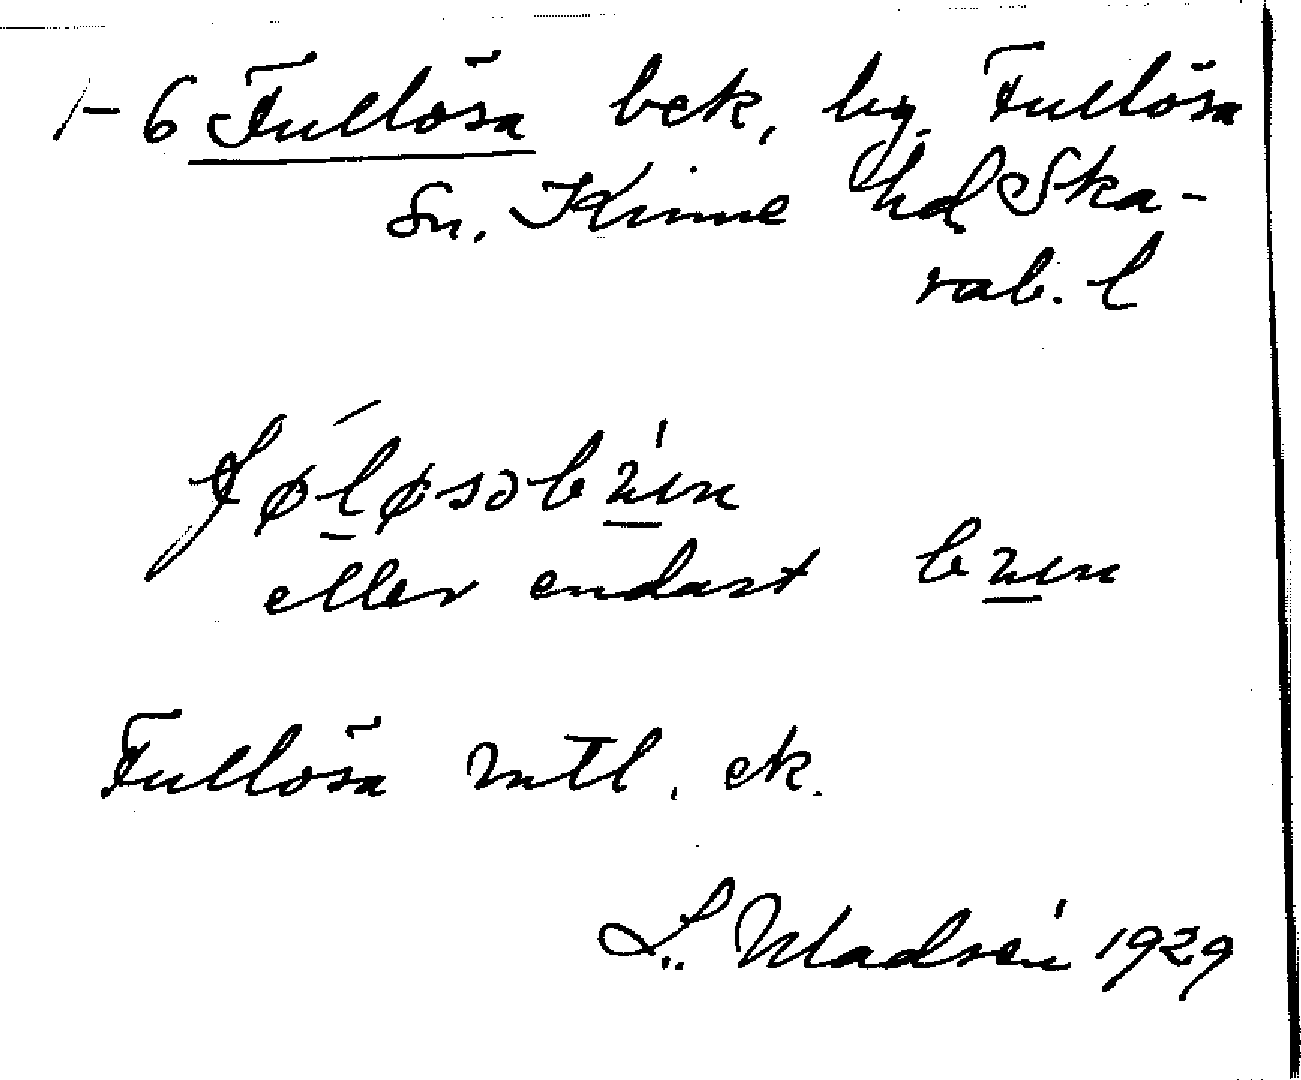 1-6 Fullösa bek, by. Fullösa
Sn. Kinne hd Ska-
rab. l
føløsəbun
eller endast bun
Fullösa mtl. ek.
L. Madsén 1929